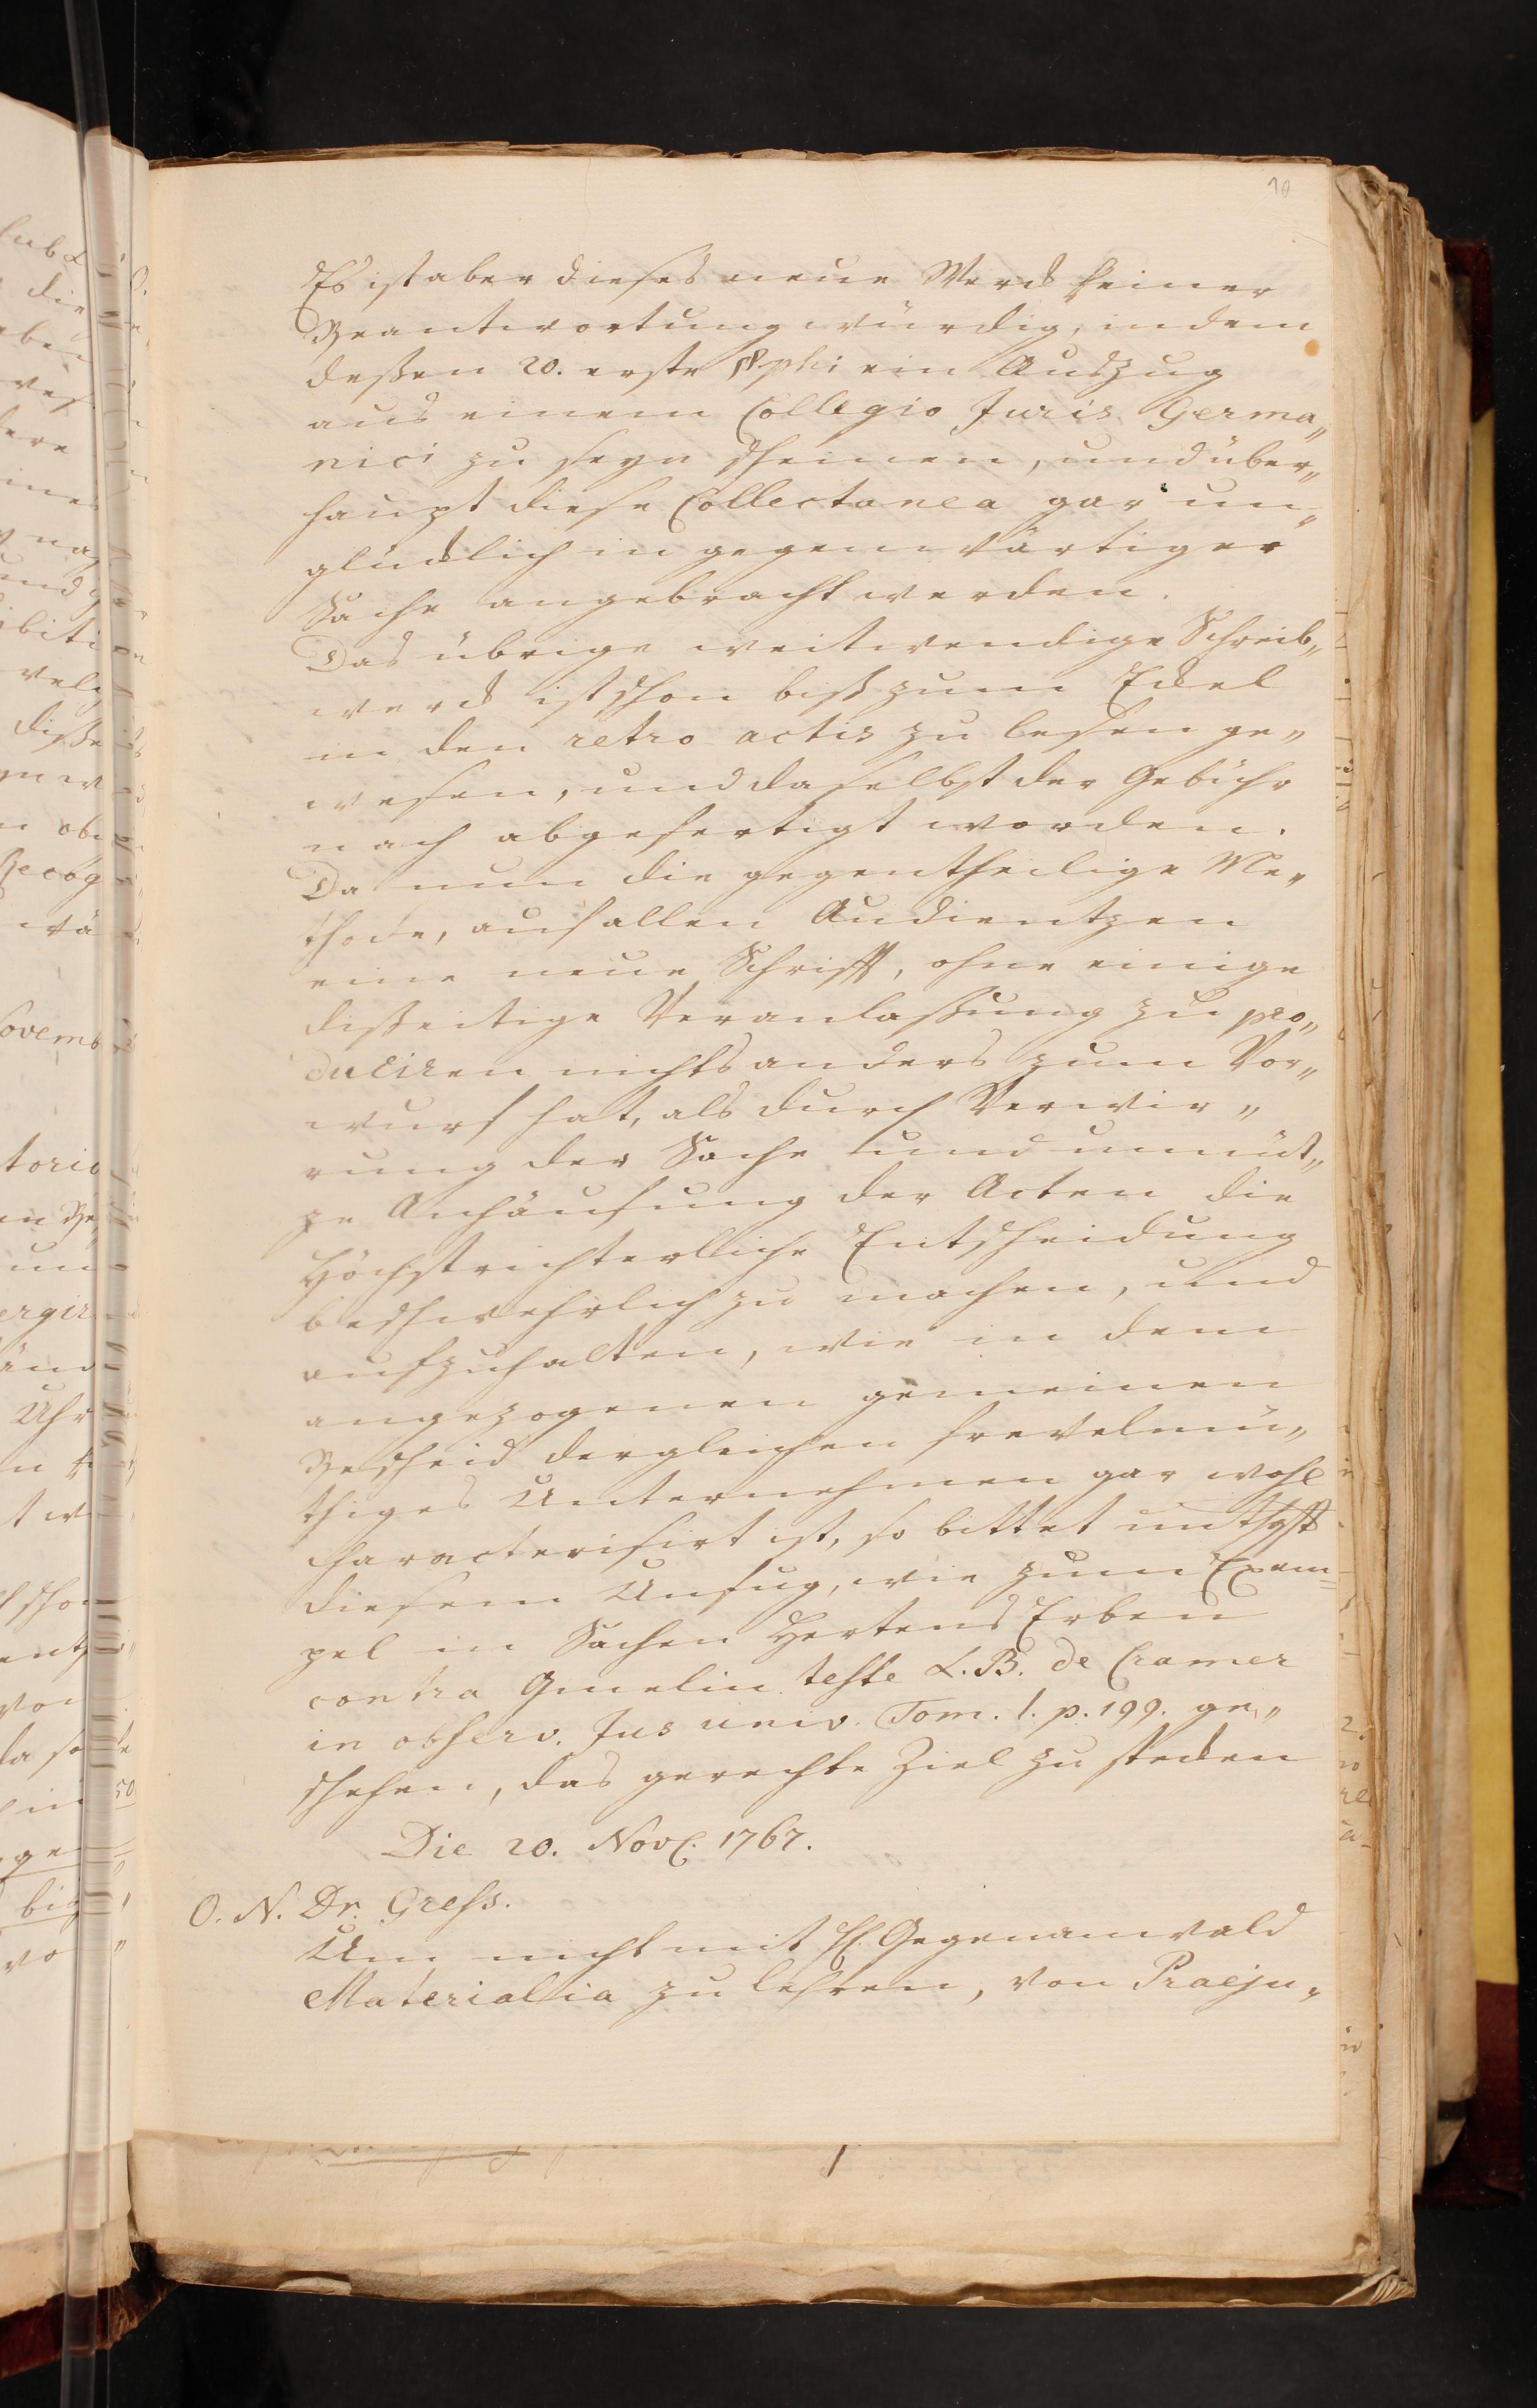 10
Es ist aber dieses neue Werck keiner
Beantwortung würdig, indem
deßen 20. erste §phi ein Auszug
aus einem Collegio Juris Germa„
nici zu seyn scheinen, und über„
haupt diese Collectanea gar un„
glücklich in gegenwärtiger
Sache angebracht werden.
Das übrige weitwendige Schreib„
werck ist schon biß zum Eckel
in den retro actis zu lesen ge„
wesen, und daselbst der Gebühr
nach abgefertigt worden.
Da nun die gegentheilige Me„
thode, auf allen Audientzen
eine neue Schrifft, ohne einige
dißeitige Veranlaßung zu pro„
duciren nichts anders zum Vor„
wurf hat, als durch Verwir„
rung der Sache und unnüt„
ze Anhäufung der Acten die
Höchstrichterlliche Entscheidung
beschwehrlich zu machen, und
aufzuhalten, wie in dem
angezogenen gemeinen
Bescheid dergleichen frevelmü„
thiges Unternehmen gar wohl
characterisirt ist, so bittet unthgst
diesem Unfug, wie zum Exem=
pel in Sachen Hertens Erben
contra Gmelin teste L. B. de Cramer
in observ. Jus univ. Tom. 1. p. 199. ge„
schehen, das gerechte Ziel zu stecken
Die 20. Nov. 1767.
O. N. Dr. Gress.
Um nicht mit H. Gegenanwald
Materiallia zu lehren, von Praeju„